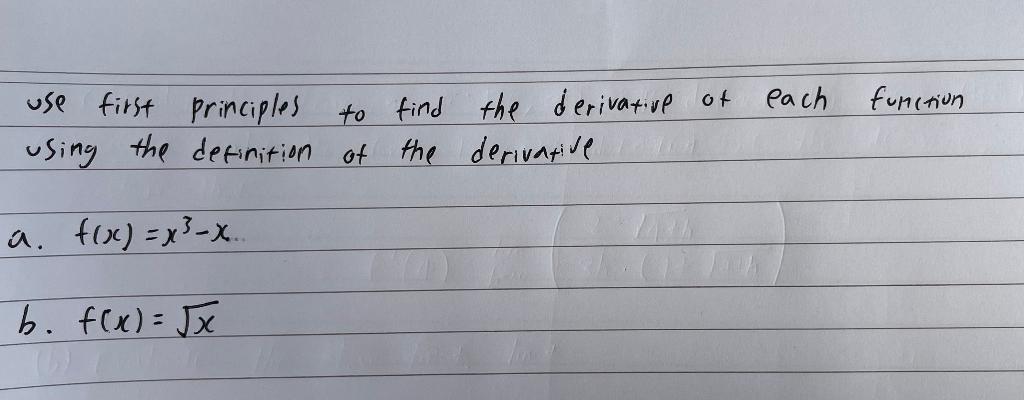 use first principles to find the derivative of each function
using the definition of the derivative
a. f(x) = x³ - x
b. f(x) = √x